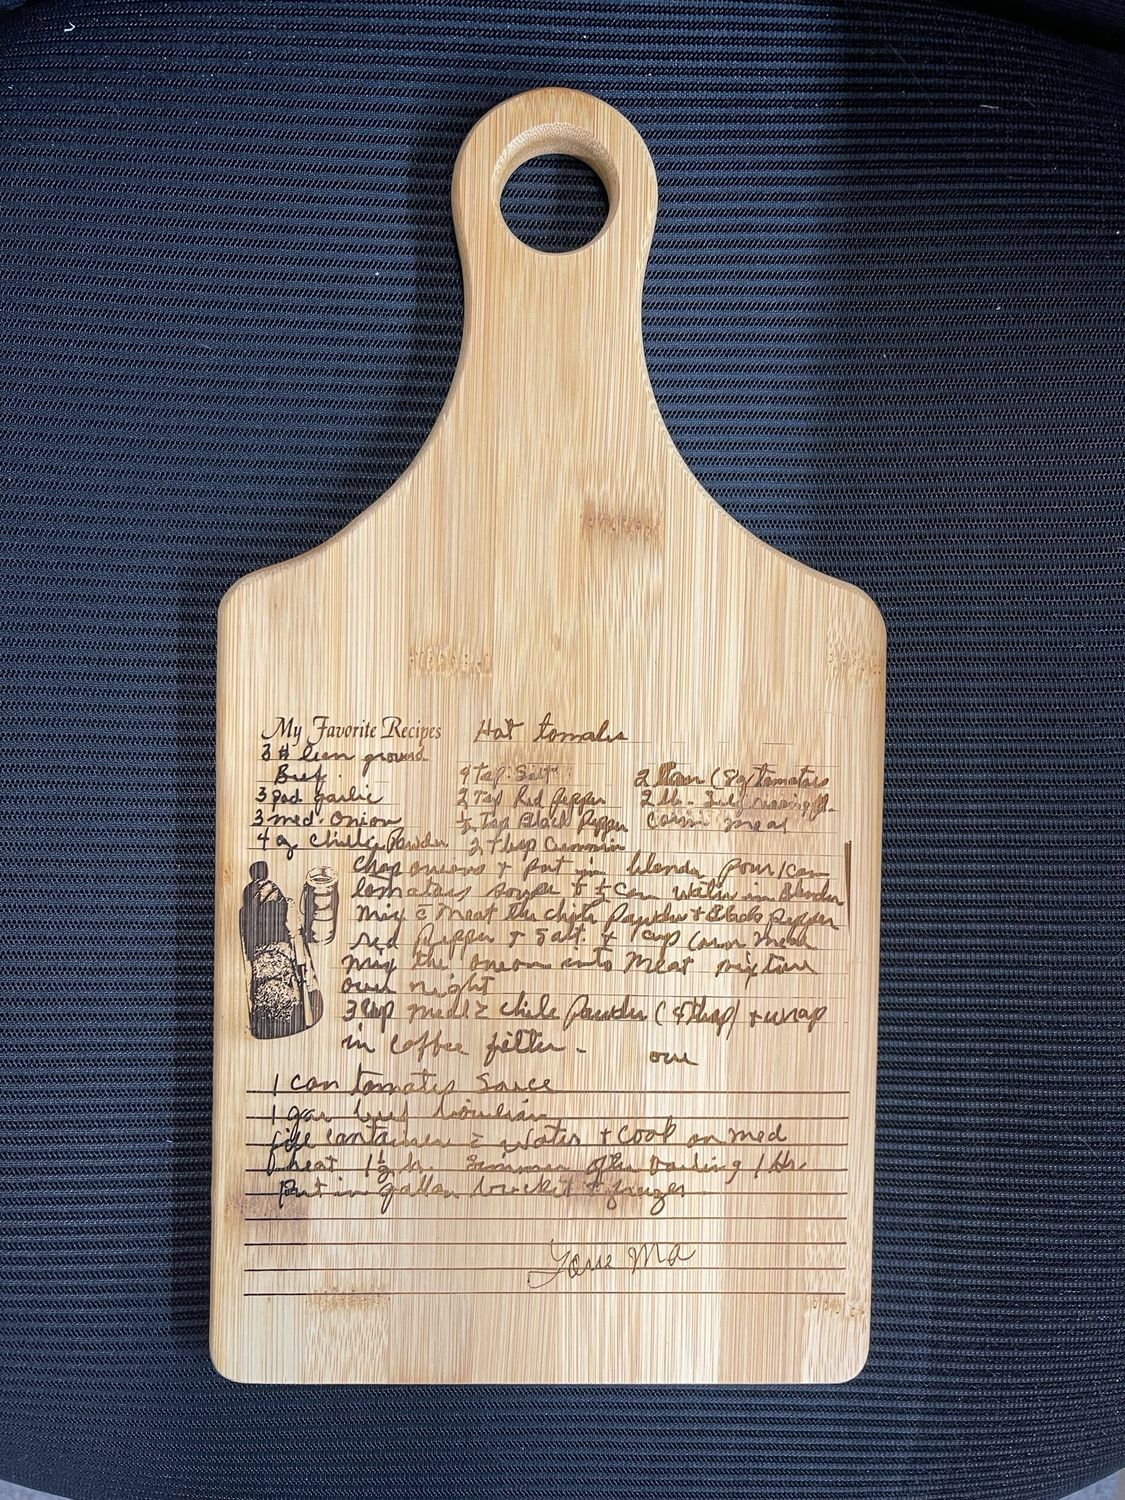 My Favorite Recipes Hot tomales
3 # lean ground
Beef.
4 Tsp. Salt
2 (8 oz tomatoes
3 pod garlic
2 Tsp Red Pepper
2 lb.
3 med. onion
½ Tsp Black Pepper
Corn meal
4 oz chili Powder
2 tbsp Cummin
chop onions + put in blender pour 1 can
tomatoes + ½ Can water in Blender
mix c̄ meat the chili Powder + Black pepper
red Pepper + Salt. + 1 cup Corn meal
mix the onion into meat mixture
over night
3 cup meal c̄ chili Powder ( tbsp) + wrap
in Coffee filter.
over
1 can tomatoe Sauce
1 jar beef boulian
container c̄ water + cook on med
heat 1½ hr. Simmer after boiling 1 Hr.
Put in gallon bucket + freezer
Love Ma